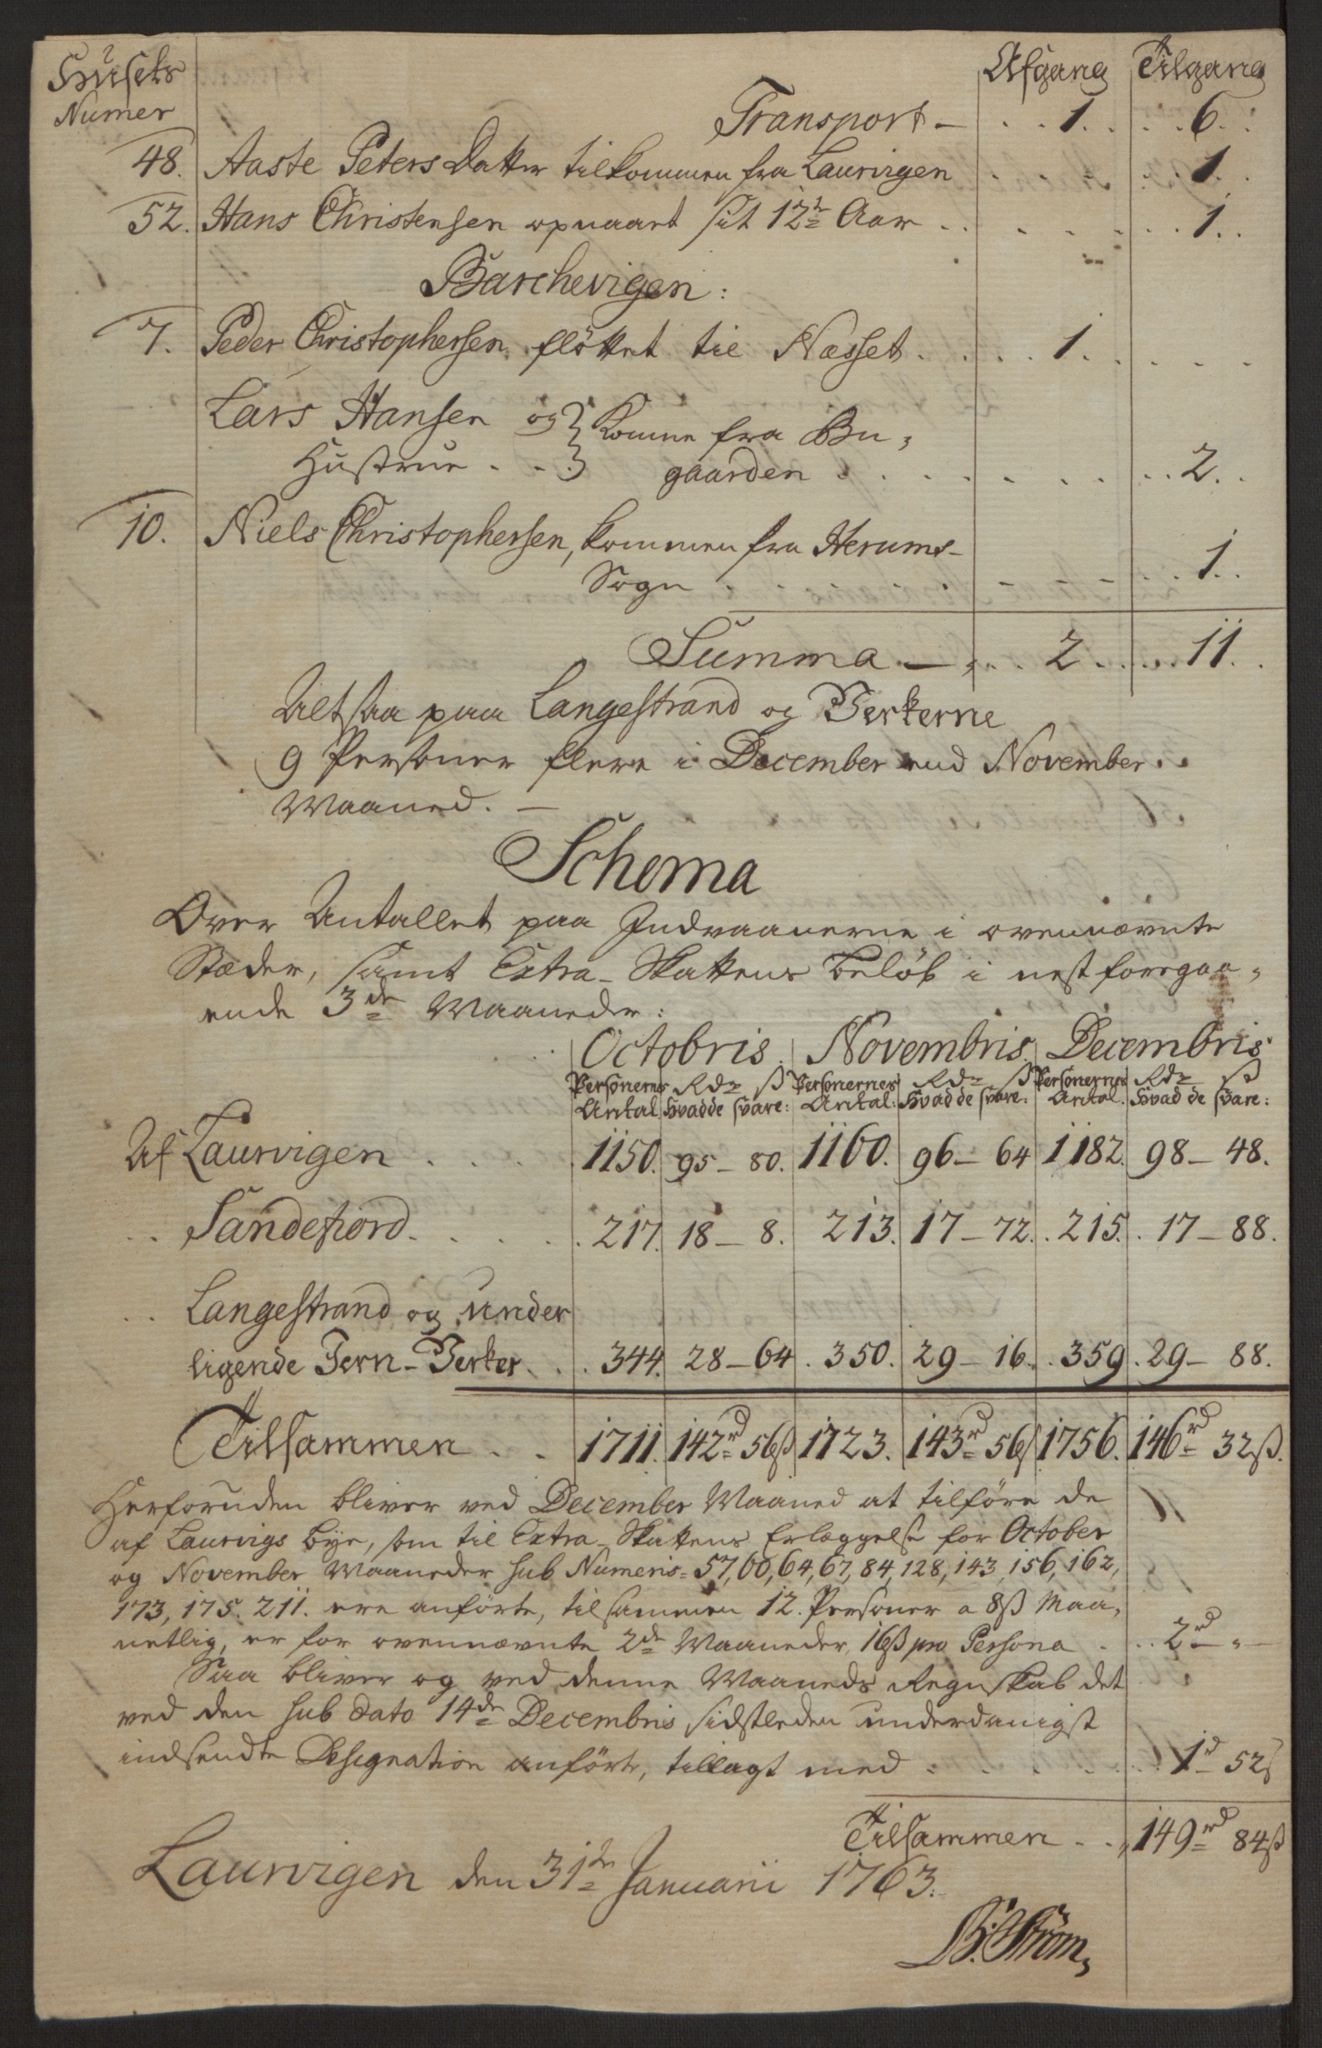 Husets Numer Afgang Tilgang
Transport — . . 1. . . . 6. .
48. Aaste Peters Datter tilkommen fra Laurvigen . . 1. .
52. Hans Christensen opvaart sit 12te Aar . . . . . . . 1. .
Barchevigen:
7. Peder Christophersen fløttet til Næsset . . . . 1. . . . .
Lars Hansen og } komne fra Bu,
Hustrue . . } gaarden . . . . . . . . 2. .
10. Niels Christophersen, kommen fra Herums-
Sogn . . . . . . 1. .
Summa — . . . 2 . . . . 11. .
Altsaa paa Langestrand og Verkerne
9 Personer flere i December end November
Maaned. —
Schema
Over Antallet paa Indvaanerne i ovennævnte
Stæder, samt Extra-Skattens beløb i nestforegaa,
ende 3de Maaneder:
Octobris Novembris Decembris
Personernes Antal Rdr ß Hvad de svare: Personernes Antal: Rdr ß Hvad de svare: Personernes Antal. Rdr ß Hvad de svare:
Af Laurvigen . . . . . 1150. 95 — 80. 1160. 96 — 64 1182. 98 — 48.
. . Sandefiord. . . . . . 217. 18 — 8. 213. 17 — 72. . 215. . 17 — 88.
. . Langestrand og under
ligende Jern-Verker. . . 344. 28 — 64 . 350. 29 — 16. . 359 . 29 — 88.
Tilsammen . . 1711. 142rd 56ß 1723. 143rd 56ß 1756. 146rd 32ß.
Herforuden bliver ved December Maaned at tilføre de
af Laurvigs bye, som til Extra-Skattens Erlæggelse for October
og November Maaneder sub Numeris = 57, 60, 64, 67, 84, 128, 143, 156, 162,
173, 175. 211. ere anførte, tilsammen 12. Personer a 8ß Maa,
netlig, er for ovennævnte 2de Maaneder, 16ß pro Persona . . . 2rd „ —
Saa bliver og ved denne Maaneds Regnskab det
ved den sub dato 14de Decembris sidstleden underdanigst
indsendte Designation anførte, tillagt med . . . . . . 1rd 52ß
Tilsammen . . „ 149rd 84ß
Laurvigen den 31te Januarii 1763.
B: Strøm,